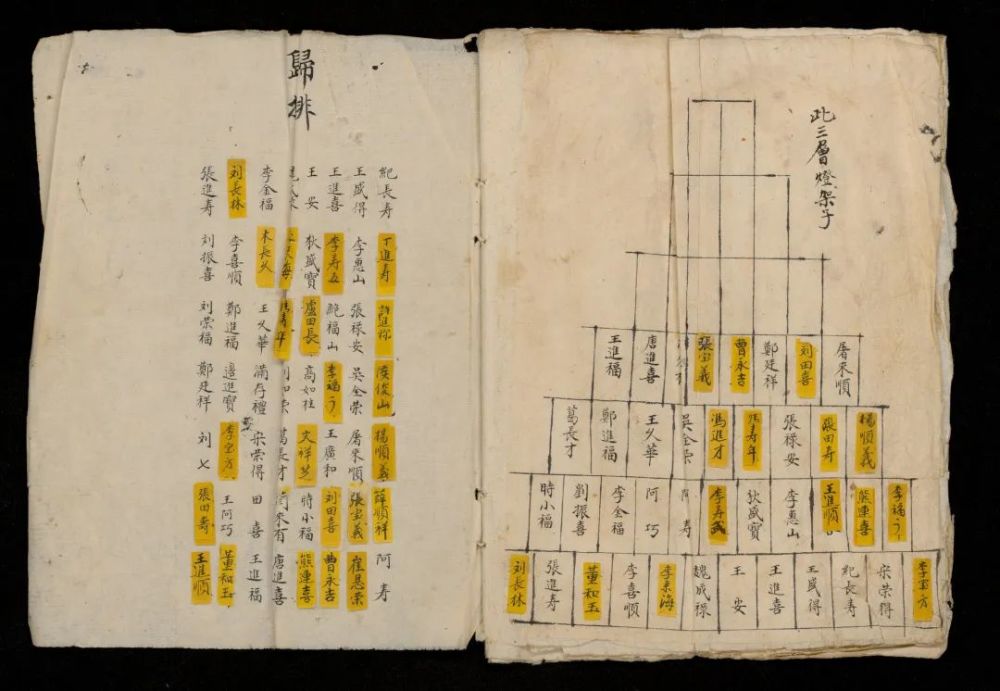 此三層燈架子
屠來順 刘田喜 鄭廷祥 曹永吉 張宝義 唐進喜 王進福
楊順義 張田寿 張祿安 寿年 馮進才 吳全荣 王久華 鄭進福 葛長才
李福 熊連喜 王進順 李惠山 狄盛寶 李寿武 阿寿 阿巧 李金福 劉振喜 時小福
李宝方 宋荣得 紀長寿 王盛得 王進喜 王安 魏成祿 李来海 李喜順 董知玉 張進寿 刘長林
歸排
紀長寿 丁進寿 俊山 楊順義 薛順祥 阿寿
王盛得 李惠山 張祿安 吳全荣 屠來順 張宝義 崔恩荣
王進喜 李寿五 鮑福山 李福 王廣和 刘田喜 曹永吉
王安 狄盛寶 盧田長 高如柱 文祥芝 時小福 熊連喜
寿年 葛長才 唐進喜
李金福 木長久 王久華 滿存禮 宋荣得 田喜 王進福
刘長林 李喜順 鄭進福 邊進寶 李宝方 王阿巧 董知玉
張進寿 刘振喜 刘荣福 鄭廷祥 刘七 張田寿 王進順